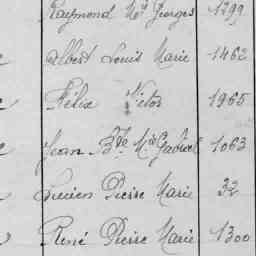 Raymond Mie Georges 1299
Albert Louis Marie 1462
Félix Victor 1965
Jean Bte Mie Gabriel 1063
Lucien Pierre Marie 32
René Pierre Marie 1300